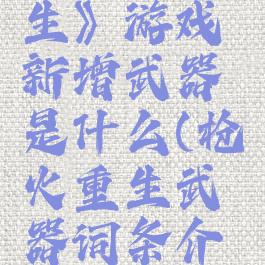 生》游戏
新增武器
是什么(枪
火重生武
器词条介